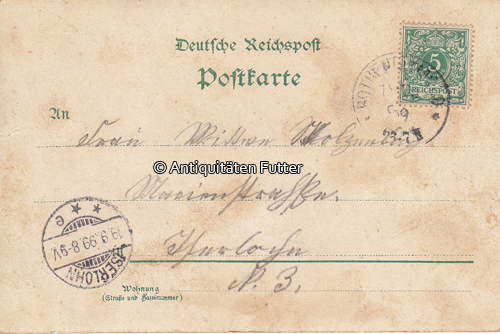 Deutsche Reichspost
Postkarte
5
REICHSPOST
99
An
Frau Witwe
© Antiquitäten Futter
Marienstrasse.
ISERLOHN
19.9.99.8-9V
* * e
Iserlohn
N. 3.
Wohnung
(Straße und Hausnummer)